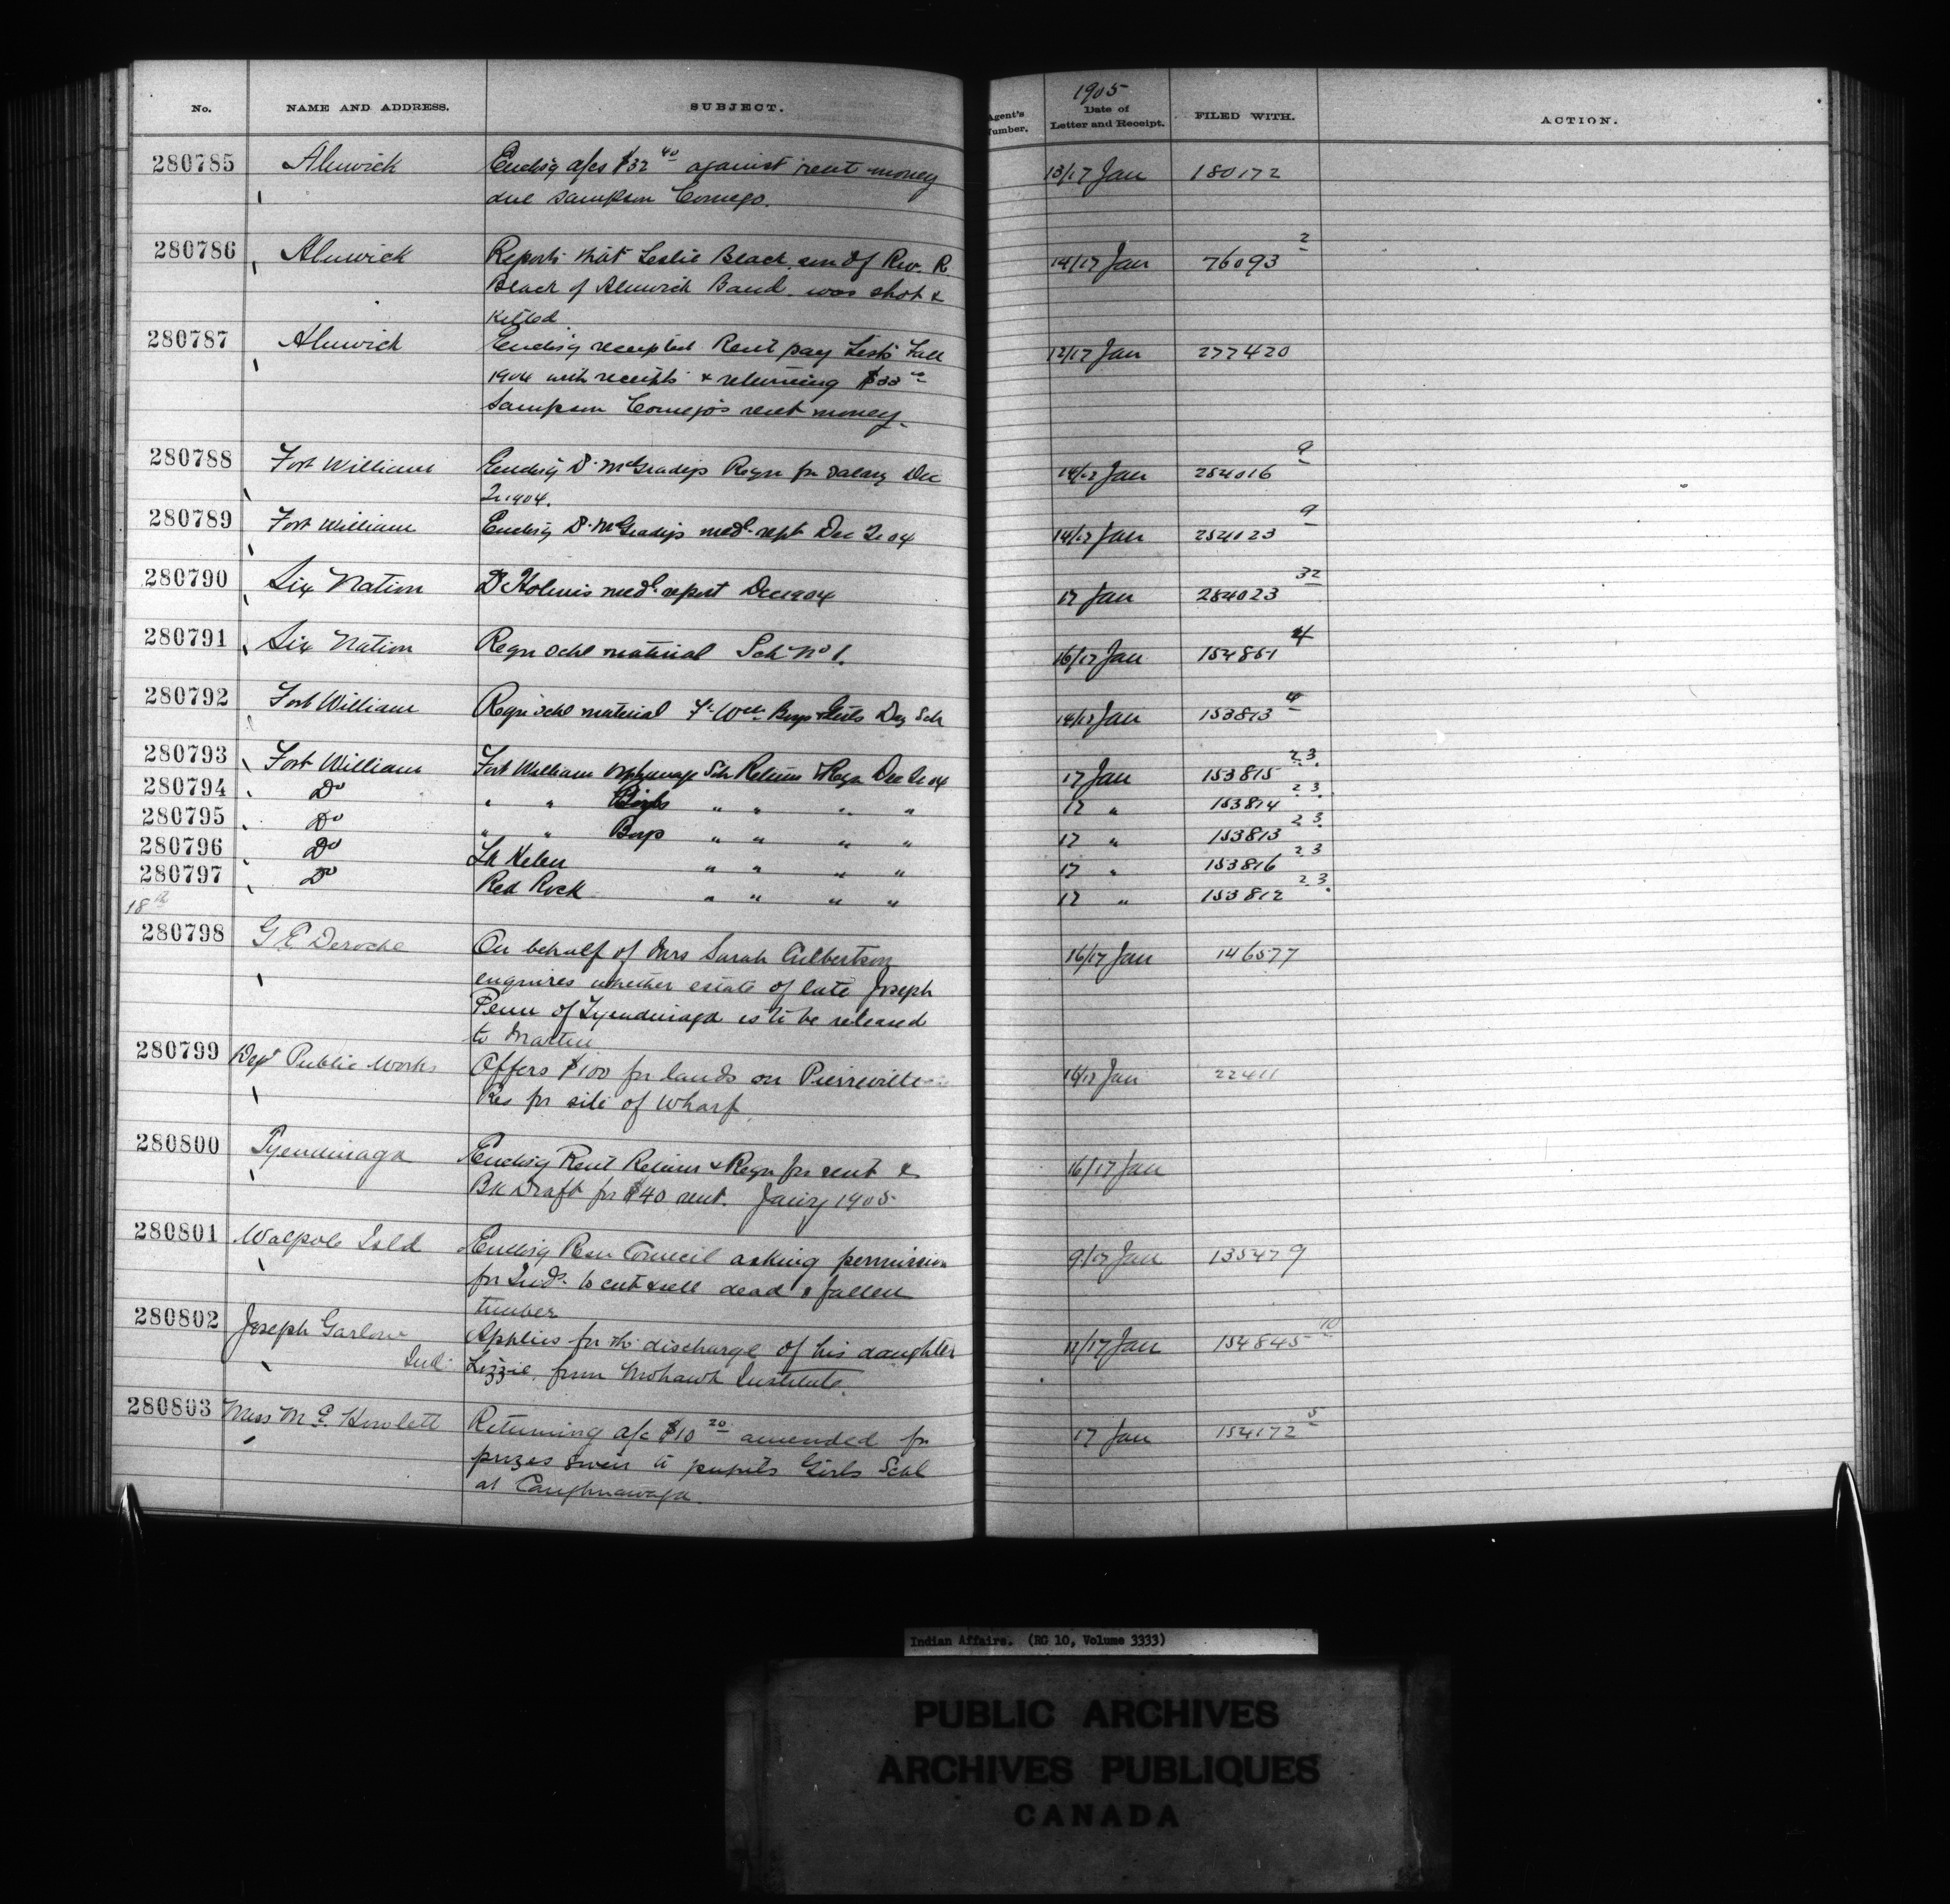 No. NAME AND ADDRESS. SUBJECT. Agent's Number. 1905 Date of Letter and Receipt. FILED WITH. ACTION.
280785 Alnwick Enclsg a/cs $32 40 against rent money 13/17 Jan 180172
due Sampson Comego.
280786 Alnwick Reports that Leslie Black son of Rev. R. 14/17 Jan 76093 2
Black of Alnwick Band was shot &
killed
280787 Alnwick Enclsg receipted Rent pay Lists Fall 12/17 Jan 277420
1904 with receipts & returning $33
Sampson Comego's rent money.
280788 Fort William Enclsg Dr McGrady's Reqn for salary Dec 14/17 Jan 254016 9
Qr 1904.
280789 Fort William Enclsg Dr McGrady's medl rept Dec Qr 04 14/17 Jan 254023 9
280790 Six Nation Dr Holmes medl report Dec 1904 17 Jan 254023 32
280791 Six Nation Reqn schl material Sch No 1. 16/17 Jan 154851 4
280792 Fort William Reqn schl material Ft Wm Boys & Girls Day Sch 14/17 Jan 153813 4
280793 Fort William Fort William Orphanage Sch Return & Reqn Dec Qr 04 17 Jan 153815 23
280794 Do " " Girls " " " " 17 " 153814 23
280795 Do " " Boys " " " " 17 " 153813 23
280796 Do Lk Helen " " " " 17 " 153816 23
280797 Do Red Rock " " " " 17 " 153812 23
18th
280798 G E Deroche On behalf of Mrs Sarah Culbertson 16/17 Jan 146577
enquires whether estate of late Joseph
Penn of Tyendinaga is to be released
to Martin
280799 Dept Public Works Offers $100 for lands on Pierreville 16/17 Jan 22411
Res for site of Wharf.
280800 Tyendinaga Enclsg Rent Return & Reqn for rent & 16/17 Jan
Bk Draft for $40 rent. Jany 1905
280801 Walpole Isld Enclsg Resn Council asking permission 9/17 Jan 135479
for Inds. to cut & sell dead & fallen
timber
280802 Joseph Garlow Applies for the discharge of his daughter 11/17 Jan 154845 10
Ind. Lizzie, from Mohawk Institute.
280803 Miss M E. Howlett Returning a/c $10 20 amended for 17 Jan 154172 5
prizes given to pupils Girls Schl
at Caughnawaga.
Indian Affairs. (RG 10, Volume 3333)
PUBLIC ARCHIVES
ARCHIVES PUBLIQUES
CANADA